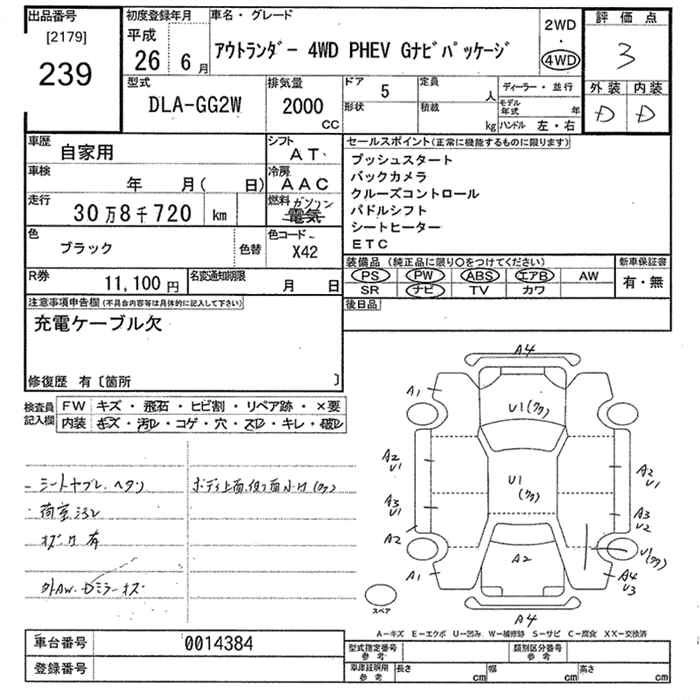 出品番号
[2179]
239
初度登録年月
平成
26 6月
車名・グレード
アウトランダー 4WD PHEV Gナビパッケージ
2WD
・
4WD
評価点
3
外装 内装
D D
型式
DLA-GG2W
排気量
2000
CC
ドア 5
形状
定員 人
積載 kg
ディーラー・並行
モデル年式 年
ハンドル 左・右
車歴
自家用
シフト
AT
車検
年 月( 日)
冷房
AAC
走行
30万8千720 km
燃料 ガソリン
電気
色
ブラック
色替
色コード
X42
R券
11,100円
名変通知期限
月 日
セールスポイント(正常に機能するものに限ります)
プッシュスタート
バックカメラ
クルーズコントロール
パドルシフト
シートヒーター
ETC
装備品(純正品に限り○をつけてください)
PS PW ABS エアB AW
SR ナビ TV カワ
新車保証書
有・無
後日品
注意事項申告欄(不具合内容等は具体的に記入して下さい)
充電ケーブル欠
修復歴 有〔箇所 〕
検査員
記入欄
FW キズ・飛石・ヒビ割・リペア跡・×要
内装 キズ・汚レ・コゲ・穴・スレ・キレ・破レ
ボディ上面
外AW.Dミラーキズ
A4
A1
U1
A2
U1
A3
U1
A2
A1
U1
A2
A2
U1
A3
U2
A4
U3
A4
スペア
A−キズ E−エクボ U−凹み W−補修跡 S−サビ C−腐食 XX−交換済
車台番号 0014384
登録番号
型式指定番号
参考
類別区分番号
参考
車庫証明用
参考
長さ cm 幅 cm 高さ cm